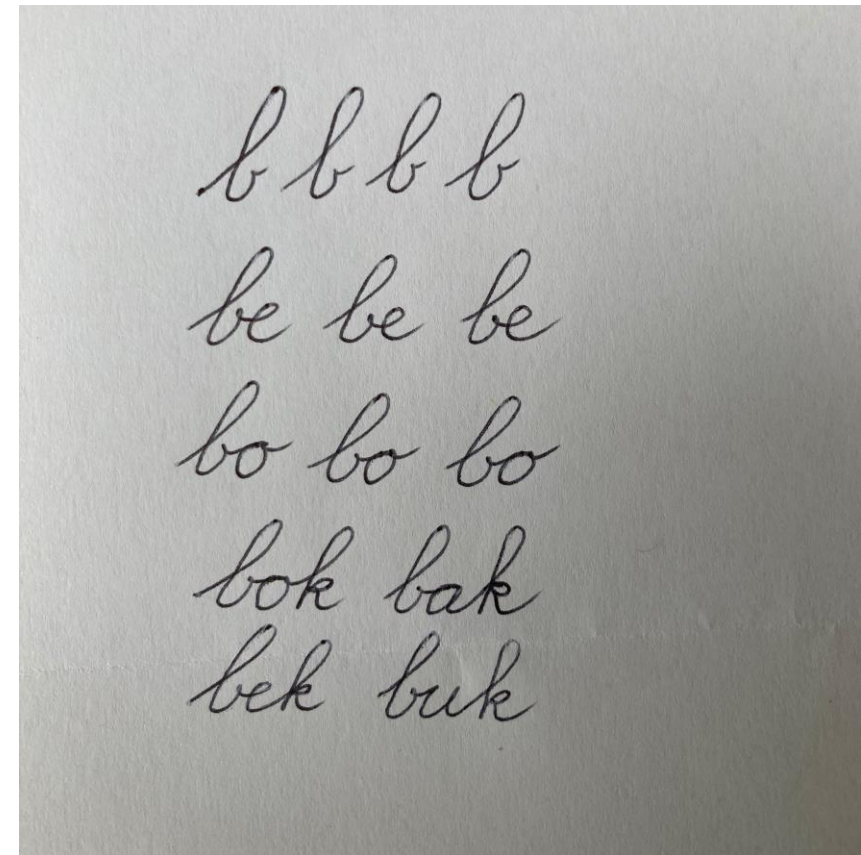 b b b b
be be be
bo bo bo
bok bak
bek buk